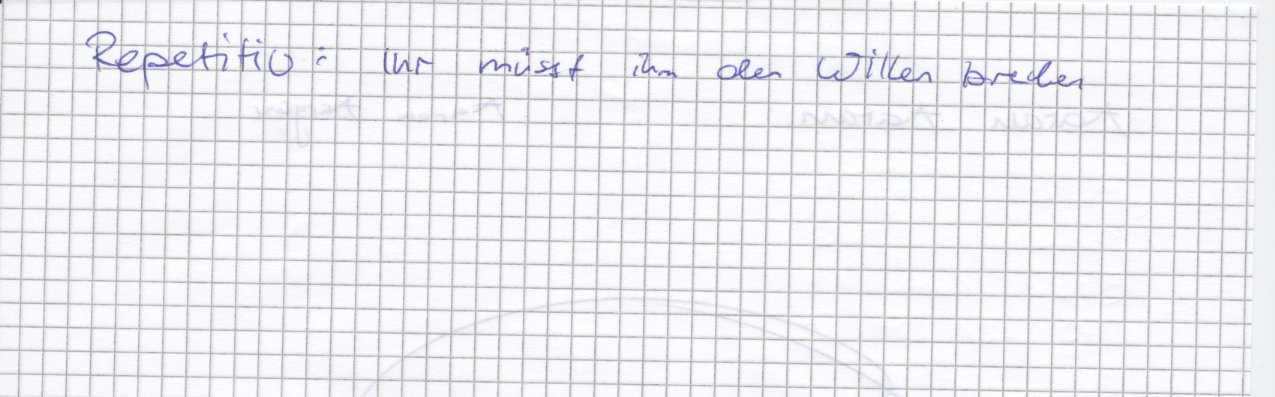 Repetitiv: ihr müsst ihm den Willen brechen